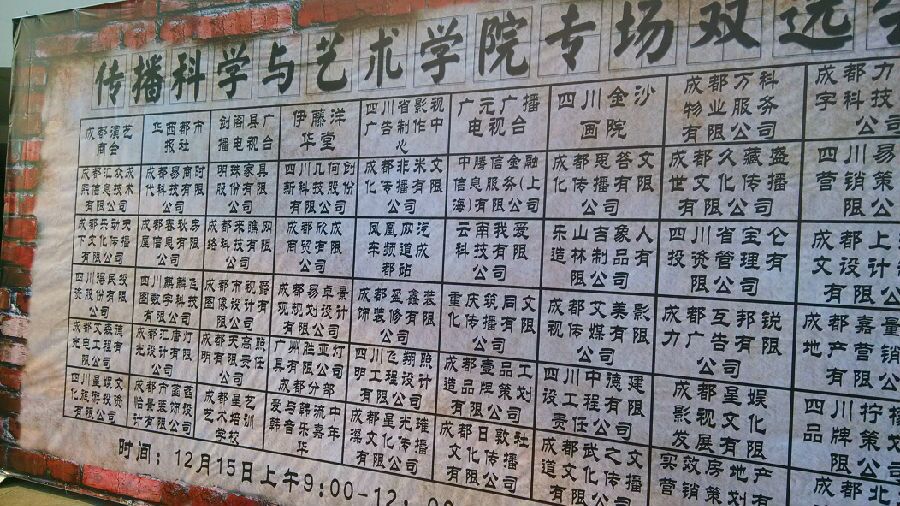 传播科学与艺术学院专场双选
成都演艺
商会
华西都市
报社
剑阁县广
播电视台
伊藤洋
华堂
四川省影视
广告制作中
心
广元广播
电视台
四川金沙
画院
成都万科
物业服务
有限公司
成都力
宇科技
有限公司
有限公司
成都易商时
代科技有限
公司
明珠家具
股份有限
公司
四川几何创
新科技股份
有限公司
成都非米文
化传播有限
公司
中腾信金融
信息服务(上
海)有限公司
成都思答文
化传播有限
公司
成都久藏盛
世文化传播
有限公司
四川易
营销策
有限公司
成都天动天
下文化传播
有限公司
成都春秋房
屋信息有限
公司
络科技有限
公司
成都欣成
商贸有限
公司
凤凰网汽
车频道成
都站
云南我爱
科技有限
公司
乐山吉象人
造林制品有
限公司
四川省宝仑
投资管理有
限公司
成都上
文设计
有限公司
四川海民投
资股份有限
公司
四川麒麟飞
图数字科技
有限公司
成都市视爵
图像设计有
限公司
成都易卓景
观规划设计
有限公司
成都盈鑫装
饰装修有限
公司
重庆筑同文
化传播有限
公司
成都艾美影
视传媒有限
公司
成都互邦锐
力广告有限
公司
成都嘉量
地产营销
有限公司
光电工程有
限公司
成都汇唐灯
光设计有限
公司
成都天高照
明有限责任
公司
广州胜亚灯
具有限公司
成都分部
四川飞翔照
明工程设计
有限公司
成都壹品工
造品牌策划
有限公司
四川中德建
设工程有限
责任公司
成都星娱
影视文化
发展有限
四川柠檬
品牌策划
有限公司
四川星娱文
化旅游投资
有限公司
怡景装饰设
计有限公司
成都星艺
艺术培训
学校
爱与韩流中
韩音乐嘉年
华
成都星光璀
璨文化传播
有限公司
成都日敦社
文化传播
有限公司
成都武之
道文化传
有限公司
实效房地产
营销策划有
成都北
时间：12月15日上午9:00-12：00